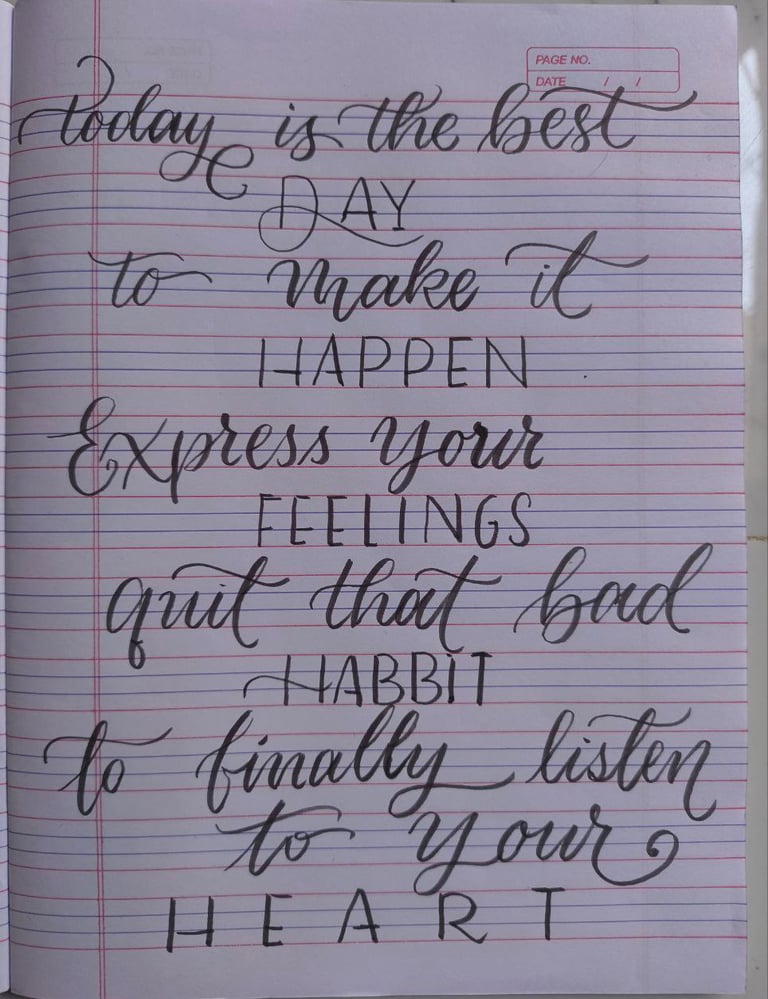 PAGE NO.
DATE / /
today is the best
DAY
to make it
HAPPEN
Express your
FEELINGS
quit that bad
HABBIT
to finally listen
to your
HEART